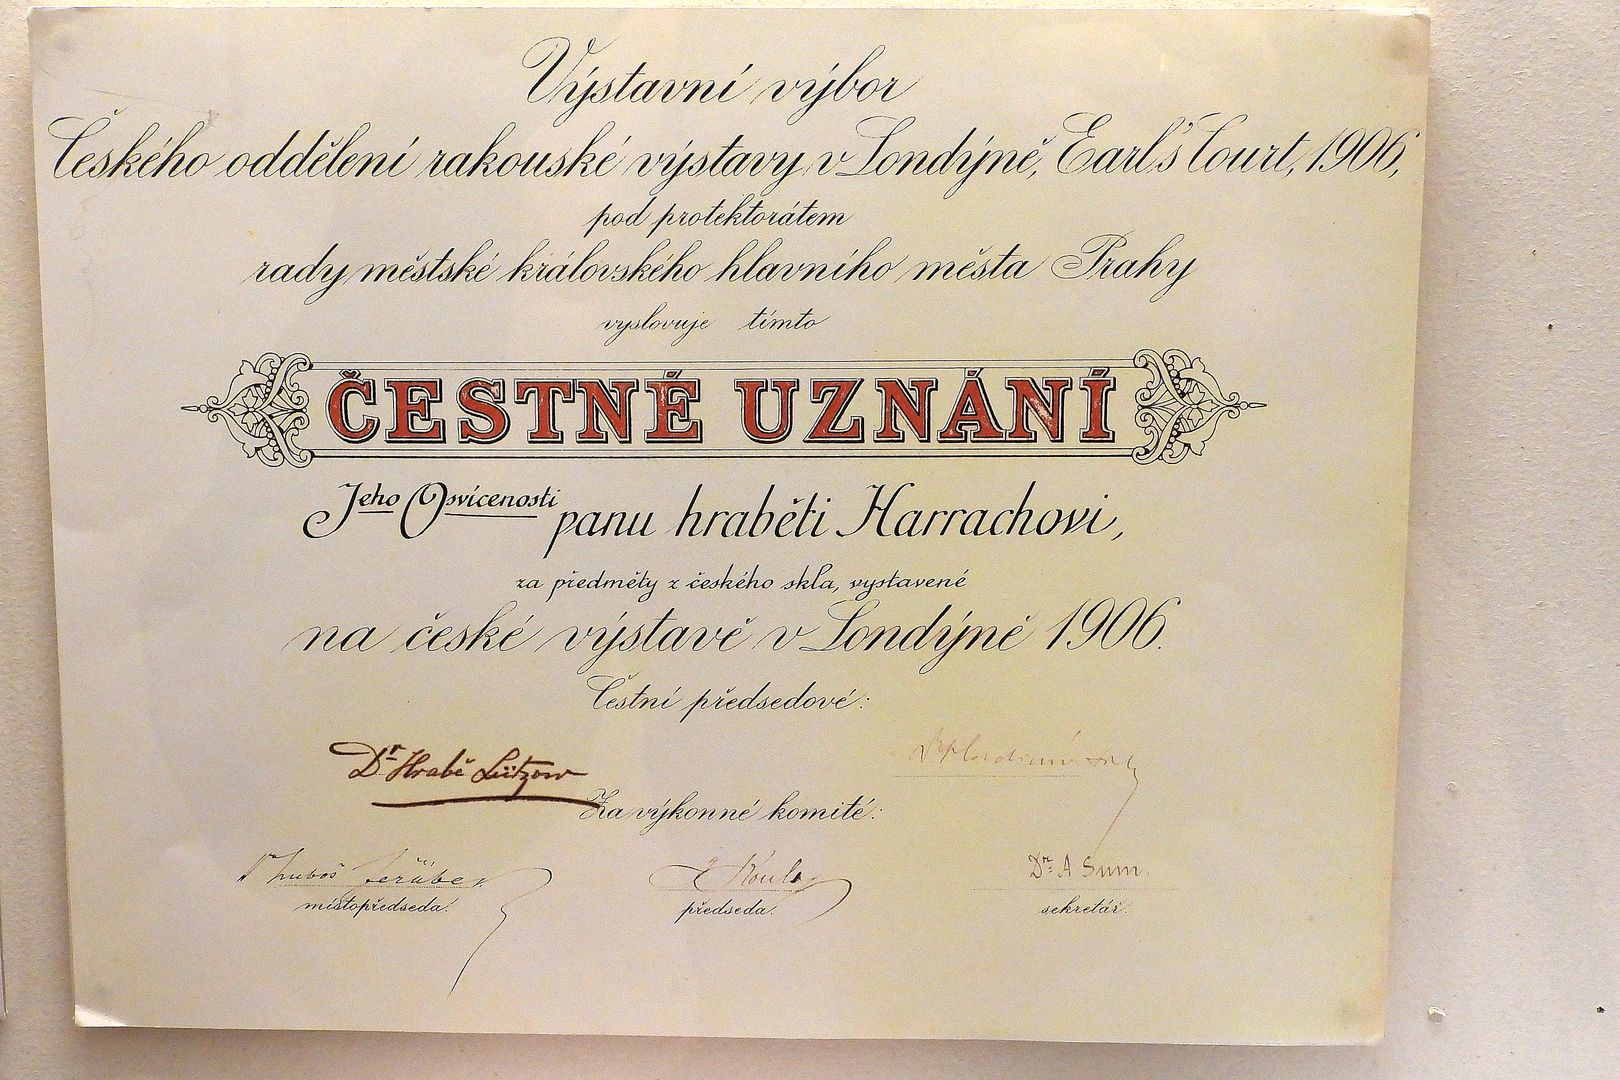 Výstavní výbor
Českého oddělení rakouské výstavy v Londýně, Earl's Court, 1906,
pod protektorátem
rady městské královského hlavního města Prahy
vyslovuje tímto
ČESTNÉ UZNÁNÍ
Jeho Osvícenosti panu hraběti Harrachovi,
za předměty z českého skla, vystavené
na české výstavě v Londýně 1906.
Čestní předsedové:
Dr. Hrabě Lützow
Za výkonné komité:
Dr Luboš Jeřábek Koula Dr. A Sum.
místopředseda. předseda. sekretář.